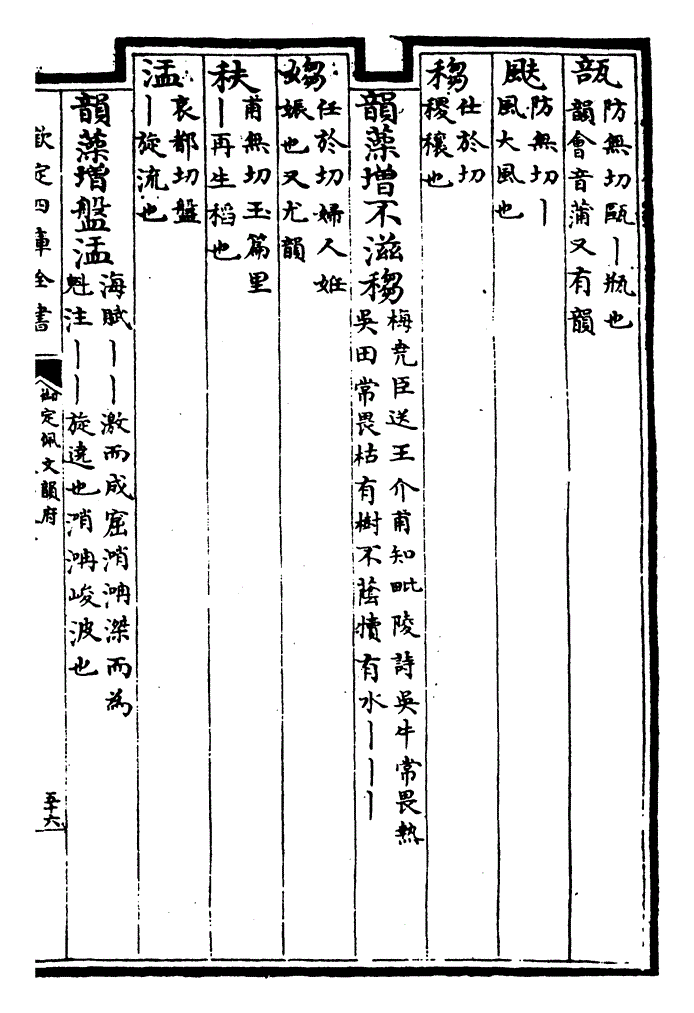 瓿
防無切瓯｜瓶也
韻會音蒲又有韻
颫
防無切｜
風大風也
䅳
仕於切
稷穰也
韻藻增不滋䅳
梅堯臣送王介甫知毗陵詩吳牛常畏熱
吳田常畏枯有樹不蔭犢有水｜｜｜
媰
任於切婦人妊
娠也又尤韻
䄮
甫無切玉篇里
｜再生稻也
盓
哀都切盤
｜旋流也
韻藻增盤盓
海賦｜｜激而成窟消滐而為
魁注｜｜旋遶也消峻波也
欽定四庫全書
御定佩文韻府
五十六